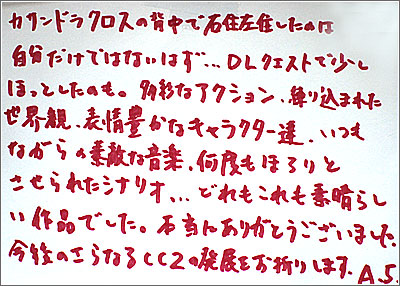 カサンドラクロスの背中で右往左往したのは
自分だけではないはず…DLクエストで少し
ほっとしたのも。多彩なアクション、練り込まれた
世界観、表情豊かなキャラクター達、いつも
ながらの素敵な音楽、何度もほろりと
させられたシナリオ…どれもこれも素晴らし
い作品でした。本当にありがとうございました。
今後のさらなるCC2の発展をお祈りします。A.S.